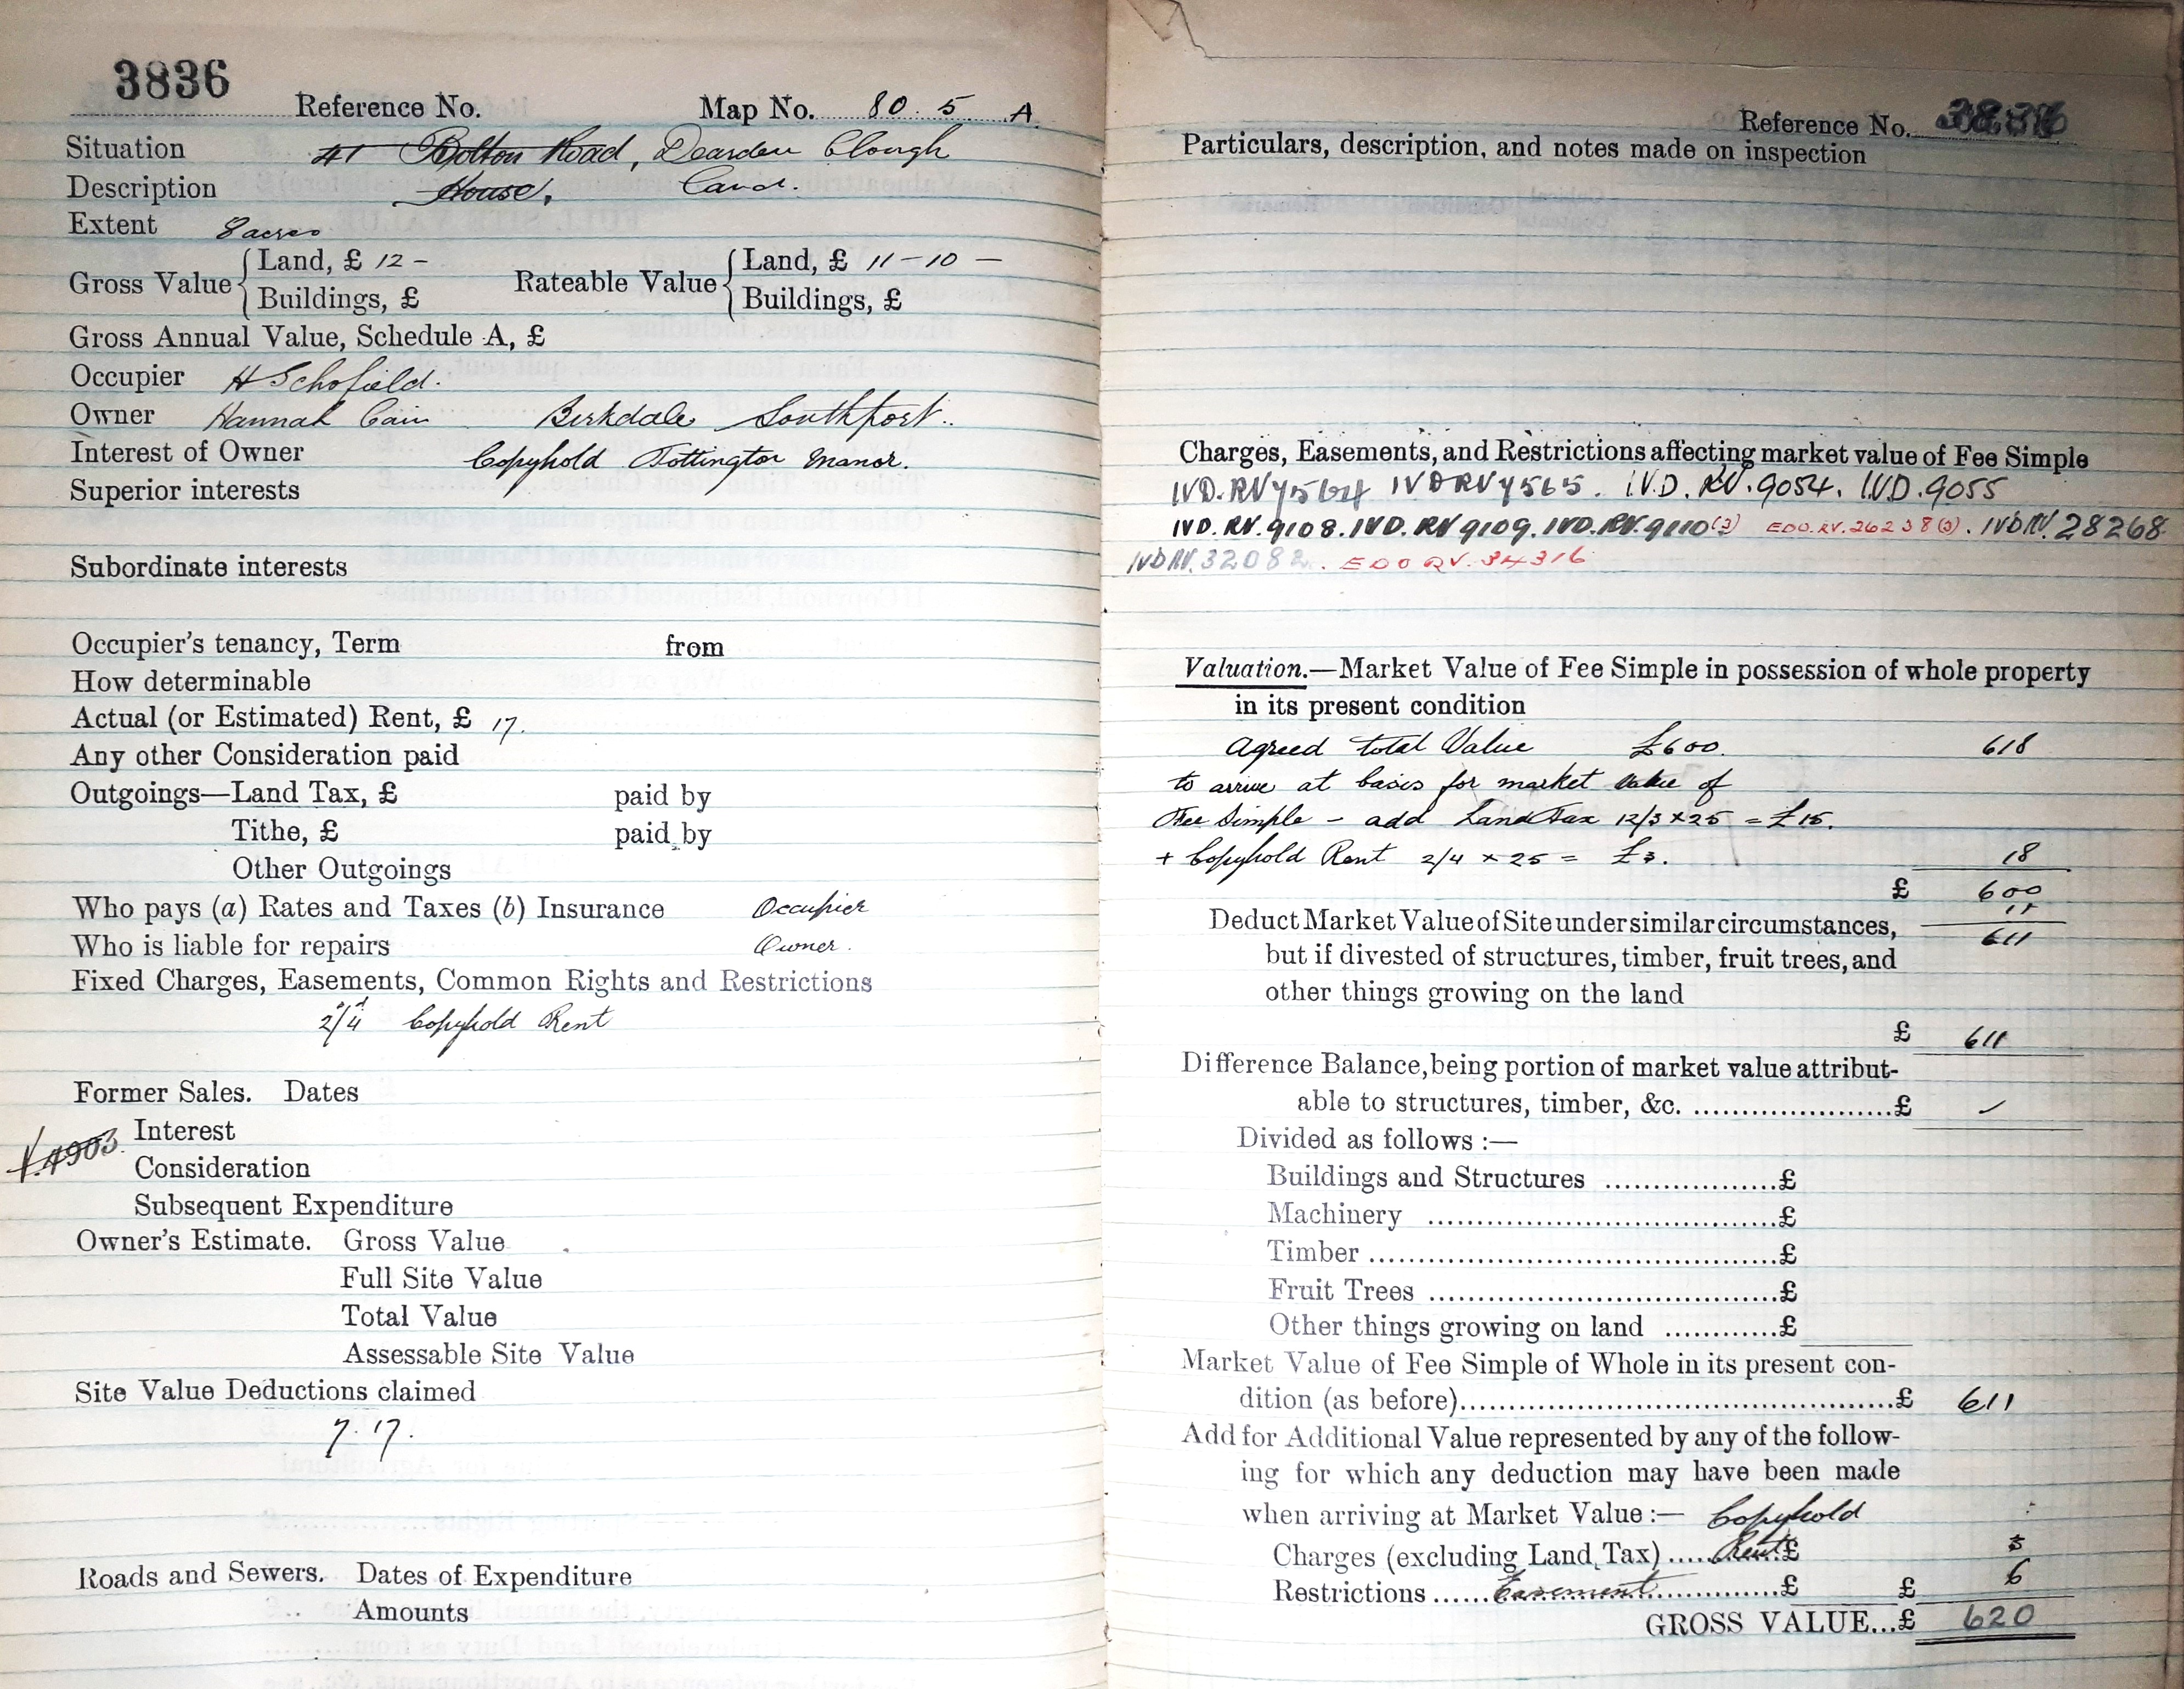 3836
Reference No. Map No. 80. 5 A
Situation 41 Bolton Road, Dearden Clough
Description House, Land.
Extent 8 acres
Gross Value { Land, £ 12 - Rateable Value { Land, £ 11-10 -
Buildings, £ Buildings, £
Gross Annual Value, Schedule A, £
Occupier H Schofield.
Owner Hannah Cain Birkdale Southport.
Interest of Owner Copyhold Tottington Manor.
Superior interests
Subordinate interests
Occupier's tenancy, Term from
How determinable
Actual (or Estimated) Rent, £ 17.
Any other Consideration paid
Outgoings—Land Tax, £ paid by
Tithe, £ paid by
Other Outgoings
Who pays (a) Rates and Taxes (b) Insurance Occupier
Who is liable for repairs Owner.
Fixed Charges, Easements, Common Rights and Restrictions
2/4 Copyhold Rent
Former Sales. Dates
Interest
V.4903.
Consideration
Subsequent Expenditure
Owner's Estimate. Gross Value
Full Site Value
Total Value
Assessable Site Value
Site Value Deductions claimed
7.17.
Roads and Sewers. Dates of Expenditure
Amounts
Reference No. 3836
Particulars, description, and notes made on inspection
Charges, Easements, and Restrictions affecting market value of Fee Simple
IVD.RV 7564 IVD RV 7565. I.V.D. RV. 9054. I.V.D. 9055
IVD. RV. 9108. IVD. RV 9109. IVD. RV. 9110(3) EDO. RV. 26238(3). IVD RV. 28268
IVD RV. 32082. EDO RV. 34316
Valuation.—Market Value of Fee Simple in possession of whole property
in its present condition
Agreed total Value £600. 618
to arrive at basis for market value of
Fee Simple - add Land Tax 12/3 x 25 = £15.
+ Copyhold Rent 2/4 x 25 = £3. 18
£ 600
11
Deduct Market Value of Site under similar circumstances, 611
but if divested of structures, timber, fruit trees, and
other things growing on the land
£ 611
Difference Balance, being portion of market value attribut-
able to structures, timber, &c. ..................... £ ✓
Divided as follows :—
Buildings and Structures .................. £
Machinery ..................................... £
Timber .......................................... £
Fruit Trees ..................................... £
Other things growing on land ............ £
Market Value of Fee Simple of Whole in its present con-
dition (as before) ................................................ £ 611
Add for Additional Value represented by any of the follow-
ing for which any deduction may have been made
when arriving at Market Value :— Copyhold
Charges (excluding Land Tax) ..... Rent £ 3
Restrictions ...... Easement ............... £ £ 6
GROSS VALUE... £ 620